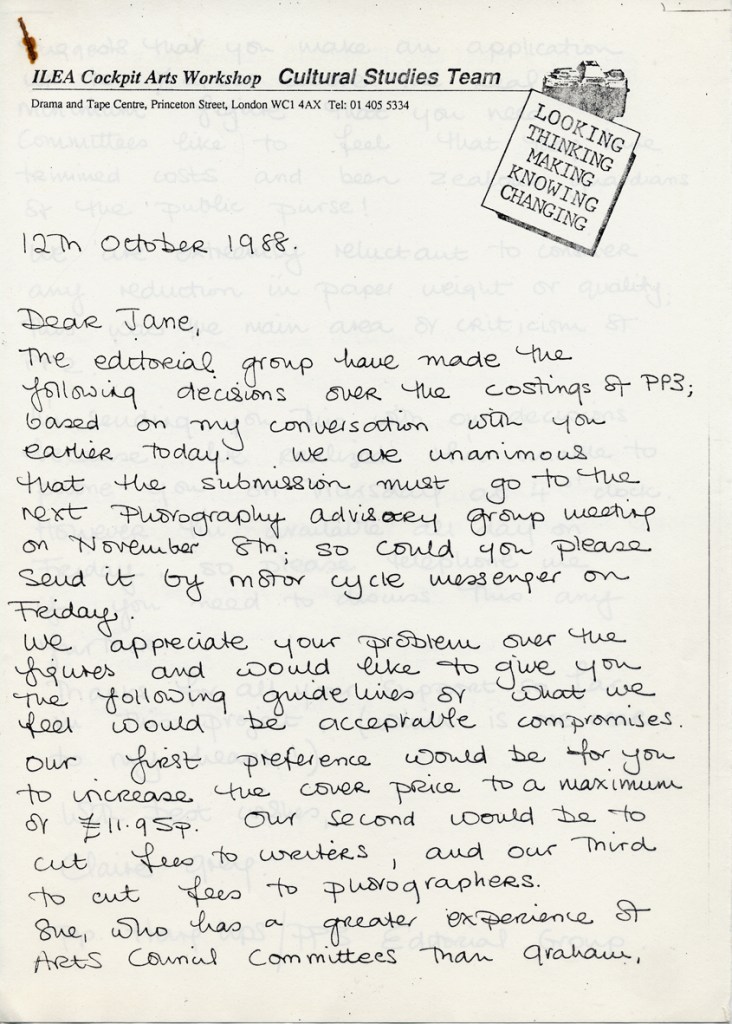 ILEA Cockpit Arts Workshop Cultural Studies Team
Drama and Tape Centre, Princeton Street, London WC1 4AX Tel: 01 405 5334
LOOKING
THINKING
MAKING
KNOWING
CHANGING
12th October 1988.
Dear Jane,
The editorial group have made the
following decisions over the costings of PP3;
based on my conversation with you
earlier today. We are unanimous
that the submission must go to the
next Photography advisory group meeting
on November 8th, so could you please
send it by motor cycle messenger on
Friday.
We appreciate your problem over the
figures and would like to give you
the following guide lines of what we
feel would be acceptable compromises.
Our first preference would be for you
to increase the cover price to a maximum
of £11.95p. Our second would be to
cut fees to writers, and our third
to cut fees to photographers.
Sue, who has a greater experience of
Arts Council Committees than Graham,